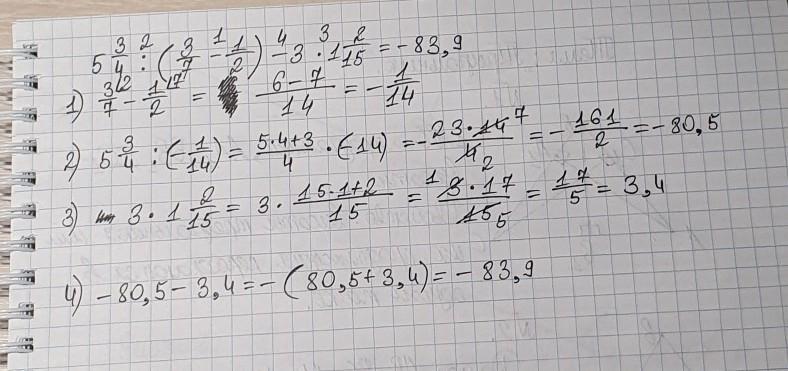 5 3/4 : (3/7 - 1/2) - 3 · 1 2/15 = - 83,9
1) 3/7 - 1/2 = (6-7)/14 = - 1/14
2) 5 3/4 : (- 1/14) = (5·4+3)/4 · (-14) = - (23·14)/4 = - 161/2 = - 80,5
3) 3 · 1 2/15 = 3 · (15·1+2)/15 = (3·17)/15 = 17/5 = 3,4
4) - 80,5 - 3,4 = - (80,5 + 3,4) = - 83,9